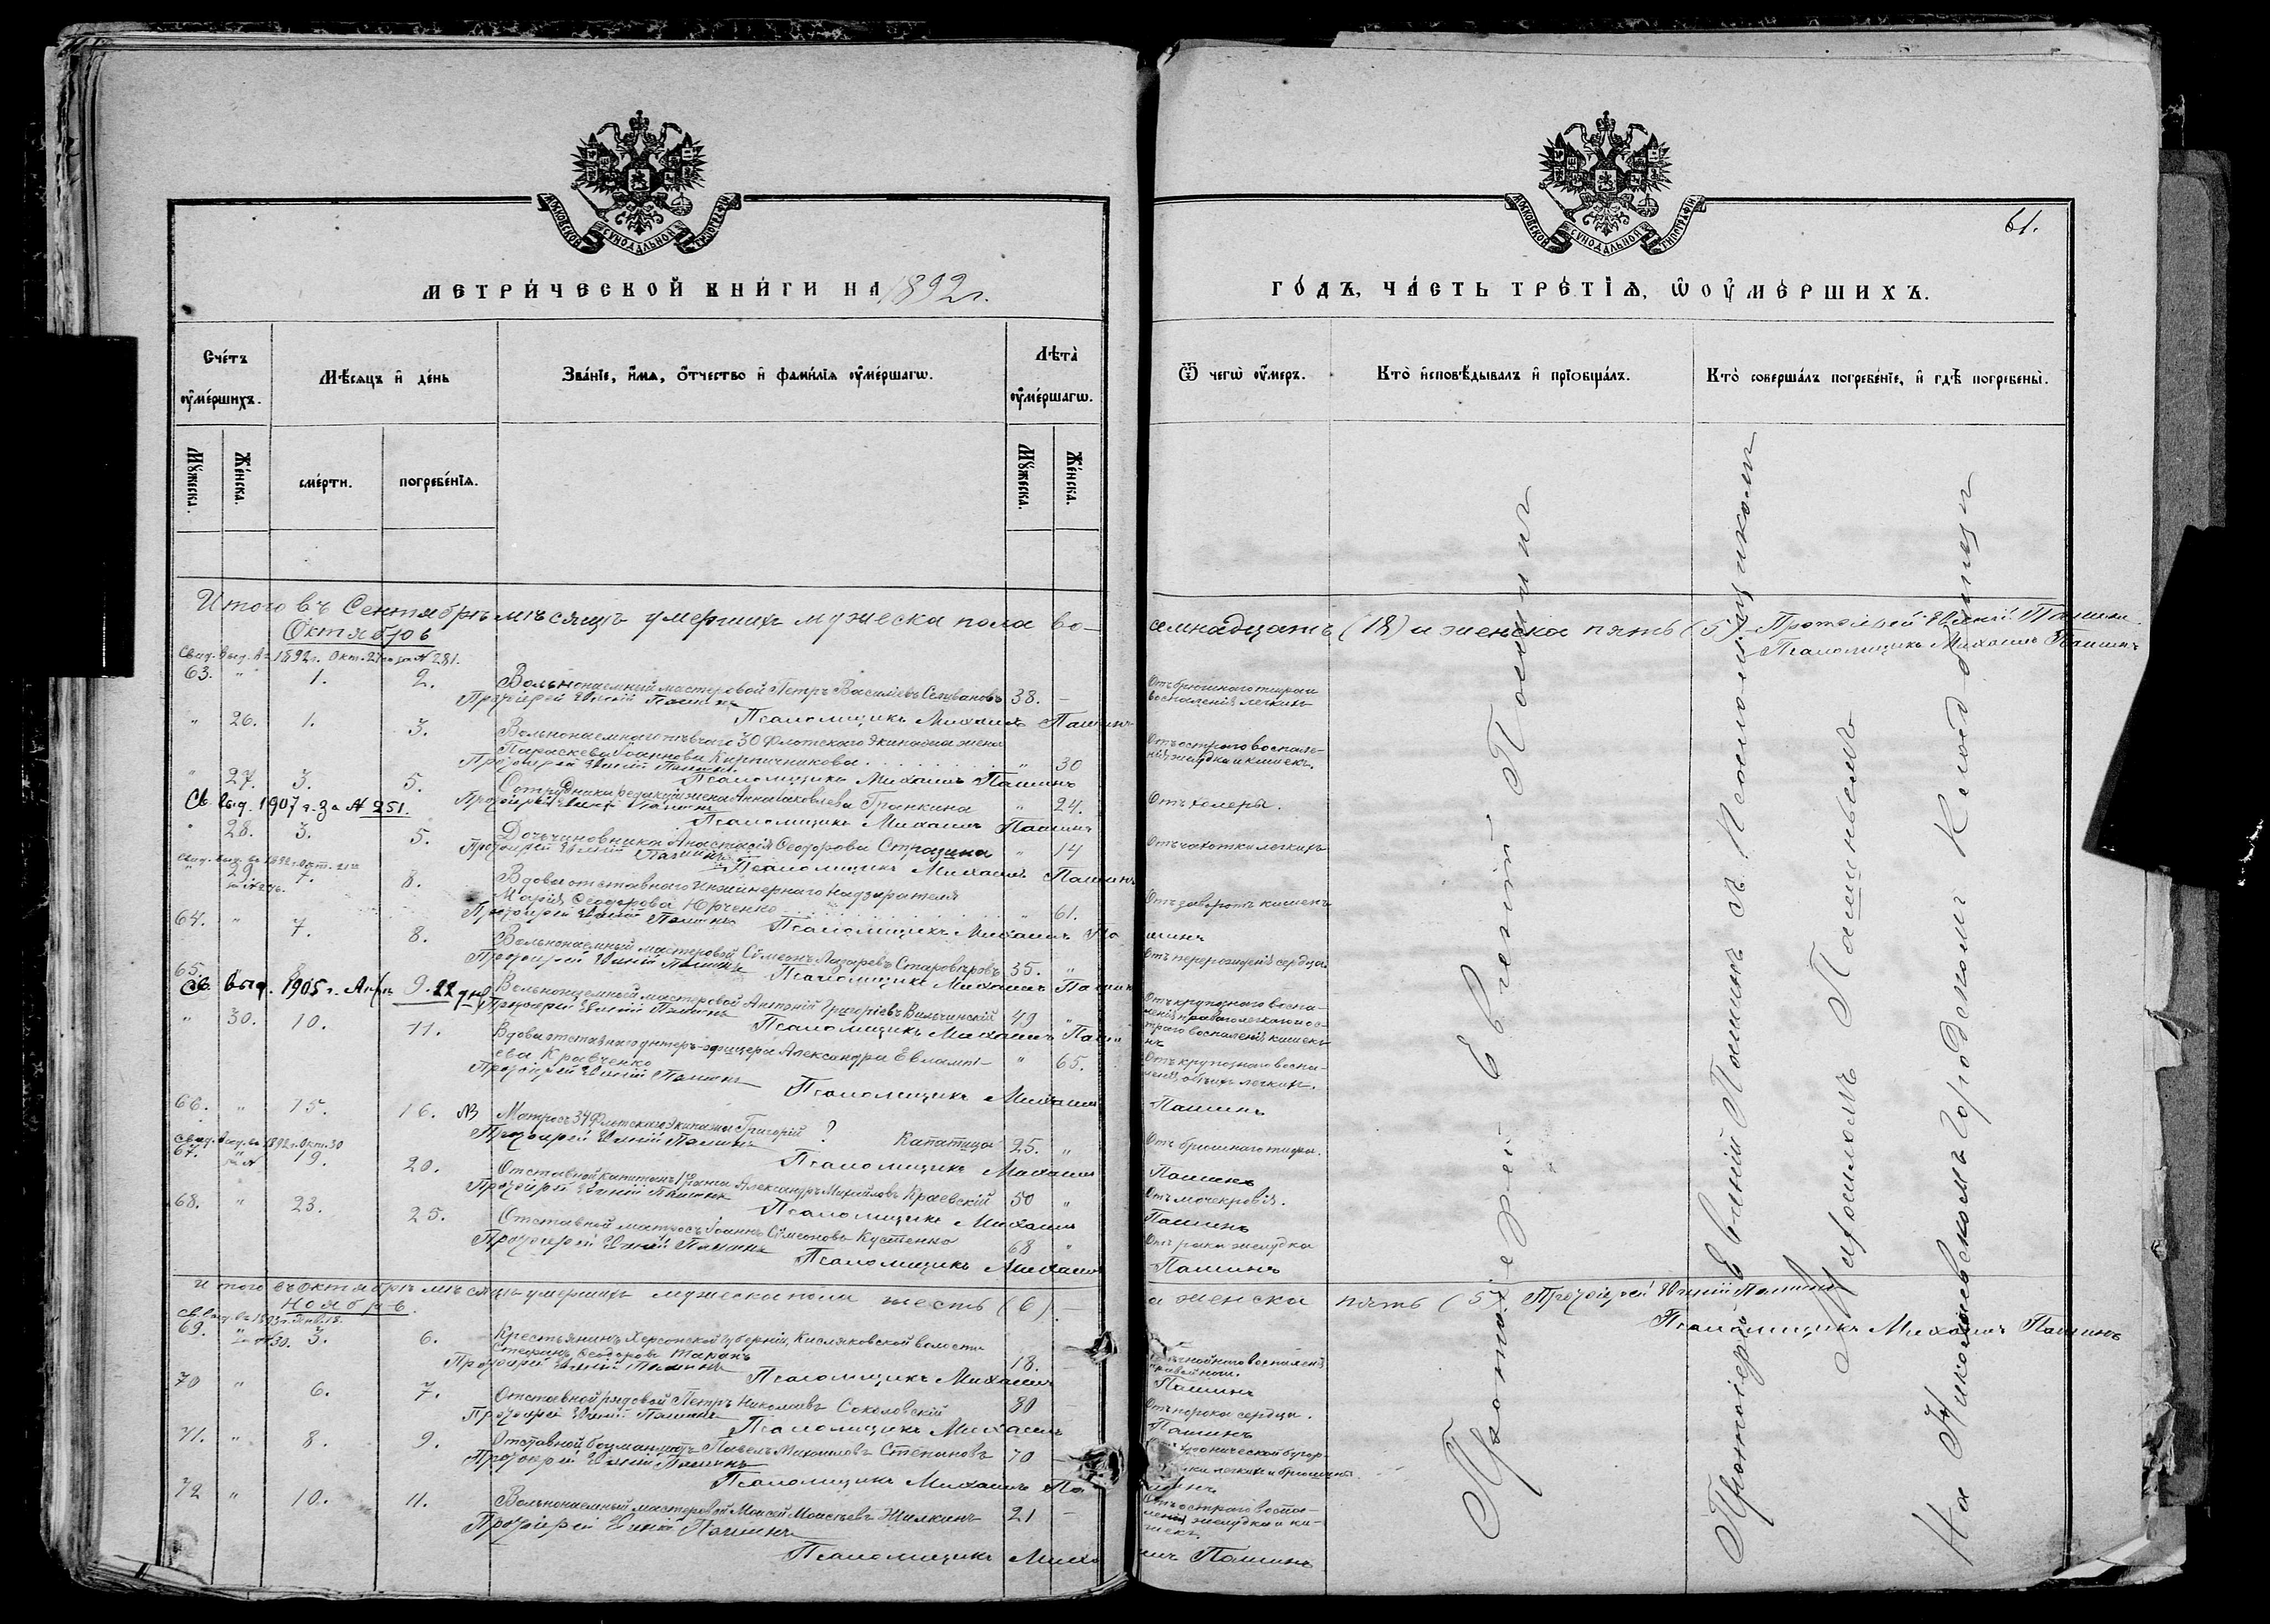 МОСКОВСКОЙ СѴНОДАЛЬНОЙ ТИПОГРАФІИ
МОСКОВСКОЙ СѴНОДАЛЬНОЙ ТИПОГРАФІИ
61.
МЕТРИ́ЧЕСКОЙ КНИ́ГИ НА 1892 г.
ГО́ДЪ, ЧА́СТЬ ТРЕ́ТІѦ, Ѡ ОУ҆МЕ́РШИХЪ.
Сче́тъ оу҆ме́ршихъ.
Мѣ́сяцъ и҆ де́нь
Зва́ніе, и҆́мѧ, ѻ҆́тчество и҆ фами́лїѧ оу҆ме́ршагѡ.
Лѣ́та оу҆ме́ршагѡ.
Ѿ чегѡ̀ оу҆́меръ.
Кто̀ и҆сповѣ́дывалъ и҆ прїѡбща́лъ.
Кто̀ соверша́лъ погребе́нїе, и҆ гдѣ̀ погребены̀.
Му́жеска.
Же́нска.
сме́рти.
погребе́нїѧ.
Му́жеска.
Же́нска.
Итого въ Сентябрѣ мѣсяцѣ умершихъ мужеска пола во-
семнадцать (18) и женска пять (5) Протоіерей Евѳимій Пашинъ
Псаломщикъ Михаилъ Пашинъ
Октябрь
Свид. выд. въ 1892 г. Окт. за № 281.
63. " 1. 2. Вольнонаемный мастеровой Петръ Василіевъ Селивановъ 38. - Отъ брюшного тифа и
воспаленія легкихъ
Протоіерей Евѳимій Пашинъ
Псаломщикъ Михаилъ Пашинъ
" 26. 1. 3. Вольнонаемнаго пѣвчаго 30 Флотскаго Экипажа жена
Параскева Іоаннова Кирпичникова " 30 Отъ остраго воспале-
нія желудка и кишекъ.
Протоіерей Евѳимій Пашинъ
Псаломщикъ Михаилъ Пашинъ
" 27. 3. 5. Сотрудника редакціи жена Анна Іаковлева Гранкина " 24. Отъ холеры.
Св. выд. 1907 г. за № 251.
Протоіерей Евѳимій Пашинъ
Псаломщикъ Михаилъ Пашинъ
" 28. 3. 5. Дочь чиновника Анастасія Ѳеодорова Страшна " 14 Отъ чахотки легкихъ
Протоіерей Евѳимій Пашинъ
Псаломщикъ Михаилъ Пашинъ
Свид. выд. въ 1892 г. Окт. 21
" 29. 7. 8. Вдова отставнаго инженернаго надзирателя
Марія Ѳеодорова Юрченко " 61. Отъ заворота кишекъ
Протоіерей Евѳимій Пашинъ
Псаломщикъ Михаилъ Пашинъ
64. " 7. 8. Вольнонаемный мастеровой Сѵмеонъ Лазаревъ Старовѣровъ 35. " Отъ перерожденія сердца
Протоіерей Евѳимій Пашинъ
Псаломщикъ Михаилъ Пашинъ
65. " 8 9. Вольнонаемный мастеровой Антоній Григоріевъ Вильчинскій 49 " Отъ крупознаго воспа-
ленія праваго легкаго и ос-
траго воспаленія кишекъ
Св. выд. 1905 г. Апр. 22 дня
Протоіерей Евѳимій Пашинъ
Псаломщикъ Михаилъ Пашинъ
" 30. 10. 11. Вдова отставнаго унтеръ-офицера Александра Евлампі-
ева Кравченко " 65. Отъ крупознаго воспа-
ленія обѣихъ легкихъ.
Протоіерей Евѳимій Пашинъ
Псаломщикъ Михаилъ Пашинъ
66. " 15. 16. NB Матросъ 34 Флотскаго Экипажа Григорій ? Капатица 25. " Отъ брюшнаго тифа.
Протоіерей Евѳимій Пашинъ
Псаломщикъ Михаилъ Пашинъ
Свид. выд. въ 1892 г. Окт. 30
67. " 19. 20. Отставной капитанъ 1 ранга Александръ Михайловъ Краевскій 50 " Отъ мочекровія.
Протоіерей Евѳимій Пашинъ
Псаломщикъ Михаилъ Пашинъ
68. " 23. 25. Отставной матросъ Іоаннъ Сѵмеоновъ Кустенко 68 " Отъ рака желудка
Протоіерей Евѳимій Пашинъ
Псаломщикъ Михаилъ Пашинъ
Итого въ Октябрѣ мѣсяцѣ умершихъ мужеска пола шесть (6)
а женска пять (5) Протоіерей Евѳимій Пашинъ
Псаломщикъ Михаилъ Пашинъ
Ноябрь.
Св. выд. въ 1893 г. Янв. 18.
69. " 3. 6. Крестьянинъ Херсонской губерніи, Кисляковской волости
Стефанъ Ѳеодоровъ Таранъ 18. - гнойнаго воспаленія
правой ноги.
за № 30.
Протоіерей Евѳимій Пашинъ
Псаломщикъ Михаилъ Пашинъ
70 " 6. 7. Отставной рядовой Петръ Николаевъ Соколовскій 80 - Отъ порока сердца.
Протоіерей Евѳимій Пашинъ
Псаломщикъ Михаилъ Пашинъ
71. " 8. 9. Отставной боцманматъ Павелъ Михаиловъ Степановъ 70 - хронической бугор-
легкихъ и брюшины.
Протоіерей Евѳимій Пашинъ
Псаломщикъ Михаилъ Пашинъ
72 " 10. 11. Вольнонаемный мастеровой Моисей Моисѣевъ Жилкинъ 21 - Отъ остраго воспа-
ленія желудка и ки-
шекъ.
Протоіерей Евѳимій Пашинъ
Псаломщикъ Михаилъ Пашинъ
Протоіерей Евѳимій Пашинъ
Протоіерей Евѳимій Пашинъ съ Псаломщикомъ
Михаиломъ Пашинымъ
На Николаевскомъ Городскомъ Кладбищѣ